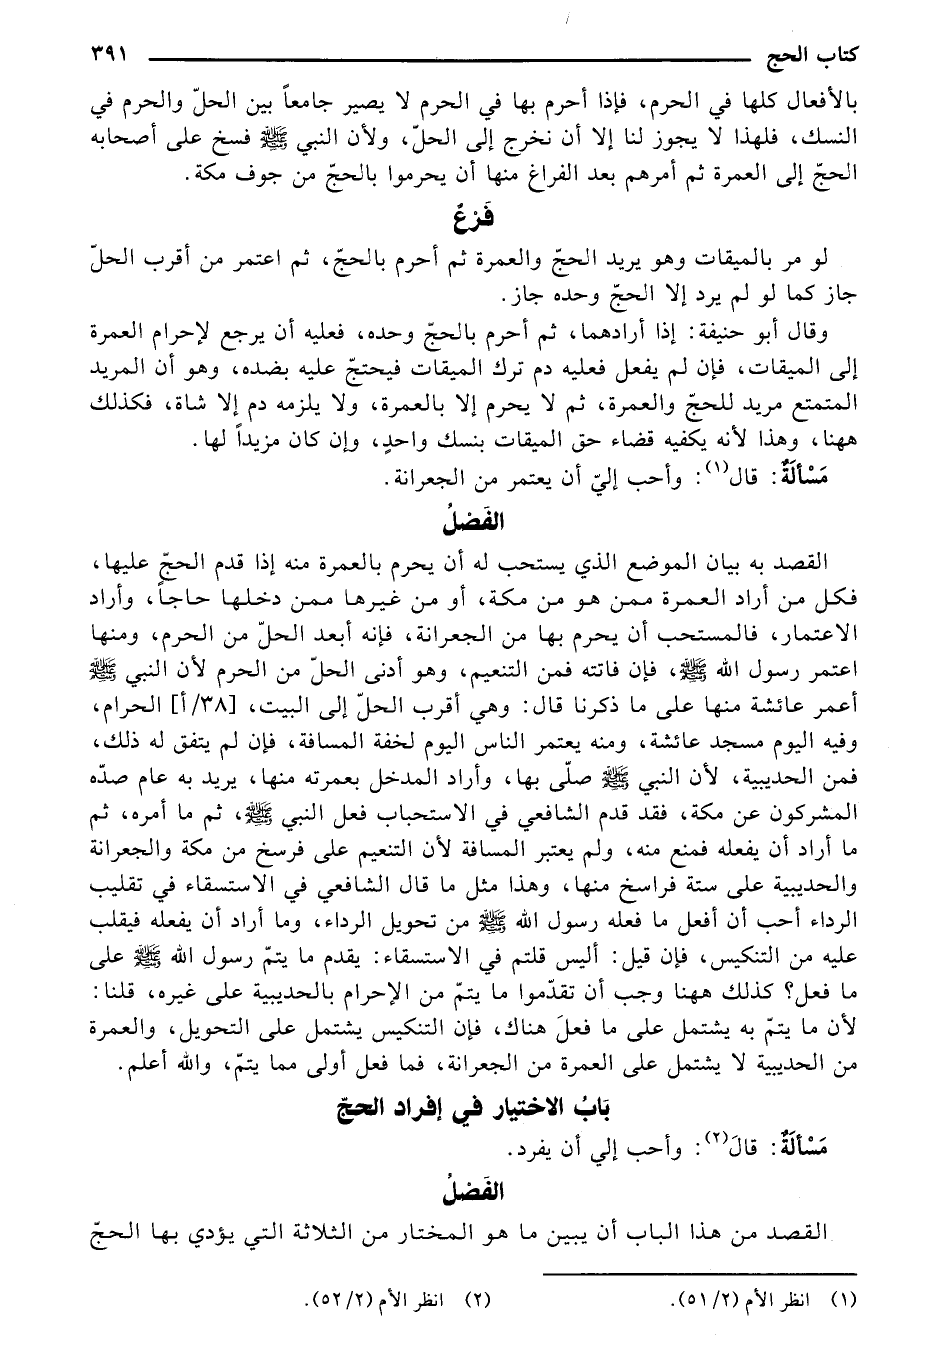 كتاب الحج ٣٩١
بالأفعال كلها في الحرم، فإذا أحرم بها في الحرم لا يصير جامعاً بين الحلّ والحرم في
النسك، فلهذا لا يجوز لنا إلا أن نخرج إلى الحلّ، ولأن النبي ﷺ فسخ على أصحابه
الحجّ إلى العمرة ثم أمرهم بعد الفراغ منها أن يحرموا بالحجّ من جوف مكة.
فَرْعٌ
لو مر بالميقات وهو يريد الحجّ والعمرة ثم أحرم بالحجّ، ثم اعتمر من أقرب الحلّ
جاز كما لو لم يرد إلا الحجّ وحده جاز.
وقال أبو حنيفة: إذا أرادهما، ثم أحرم بالحجّ وحده، فعليه أن يرجع لإحرام العمرة
إلى الميقات، فإن لم يفعل فعليه دم ترك الميقات فيحتجّ عليه بضده، وهو أن المريد
المتمتع مريد للحجّ والعمرة، ثم لا يحرم إلا بالعمرة، ولا يلزمه دم إلا شاة، فكذلك
ههنا، وهذا لأنه يكفيه قضاء حق الميقات بنسك واحدٍ، وإن كان مزيداً لها.
مَسْأَلَةٌ: قال(١): وأحب إليّ أن يعتمر من الجعرانة.
الفَصْلُ
القصد به بيان الموضع الذي يستحب له أن يحرم بالعمرة منه إذا قدم الحجّ عليها،
فكل من أراد العمرة ممن هو من مكة، أو من غيرها ممن دخلها حاجاً، وأراد
الاعتمار، فالمستحب أن يحرم بها من الجعرانة، فإنه أبعد الحلّ من الحرم، ومنها
اعتمر رسول الله ﷺ، فإن فاتته فمن التنعيم، وهو أدنى الحلّ من الحرم لأن النبي ﷺ
أعمر عائشة منها على ما ذكرنا قال: وهي أقرب الحلّ إلى البيت، [٣٨/أ] الحرام،
وفيه اليوم مسجد عائشة، ومنه يعتمر الناس اليوم لخفة المسافة، فإن لم يتفق له ذلك،
فمن الحديبية، لأن النبي ﷺ صلّى بها، وأراد المدخل بعمرته منها، يريد به عام صدّه
المشركون عن مكة، فقد قدم الشافعي في الاستحباب فعل النبي ﷺ، ثم ما أمره، ثم
ما أراد أن يفعله فمنع منه، ولم يعتبر المسافة لأن التنعيم على فرسخ من مكة والجعرانة
والحديبية على ستة فراسخ منها، وهذا مثل ما قال الشافعي في الاستسقاء في تقليب
الرداء أحب أن أفعل ما فعله رسول الله ﷺ من تحويل الرداء، وما أراد أن يفعله فيقلب
عليه من التنكيس، فإن قيل: أليس قلتم في الاستسقاء: يقدم ما يتمّ رسول الله ﷺ على
ما فعل؟ كذلك ههنا وجب أن تقدّموا ما يتمّ من الإحرام بالحديبية على غيره، قلنا:
لأن ما يتمّ به يشتمل على ما فعلَ هناك، فإن التنكيس يشتمل على التحويل، والعمرة
من الحديبية لا يشتمل على العمرة من الجعرانة، فما فعل أولى مما يتمّ، والله أعلم.
بَابُ الاختيار في إفراد الحجّ
مَسْأَلَةٌ: قالَ(٢): وأحب إلي أن يفرد.
الفَصْلُ
القصد من هذا الباب أن يبين ما هو المختار من الثلاثة التي يؤدي بها الحجّ
(١) انظر الأم (٥١/٢). (٢) انظر الأم (٥٢/٢).